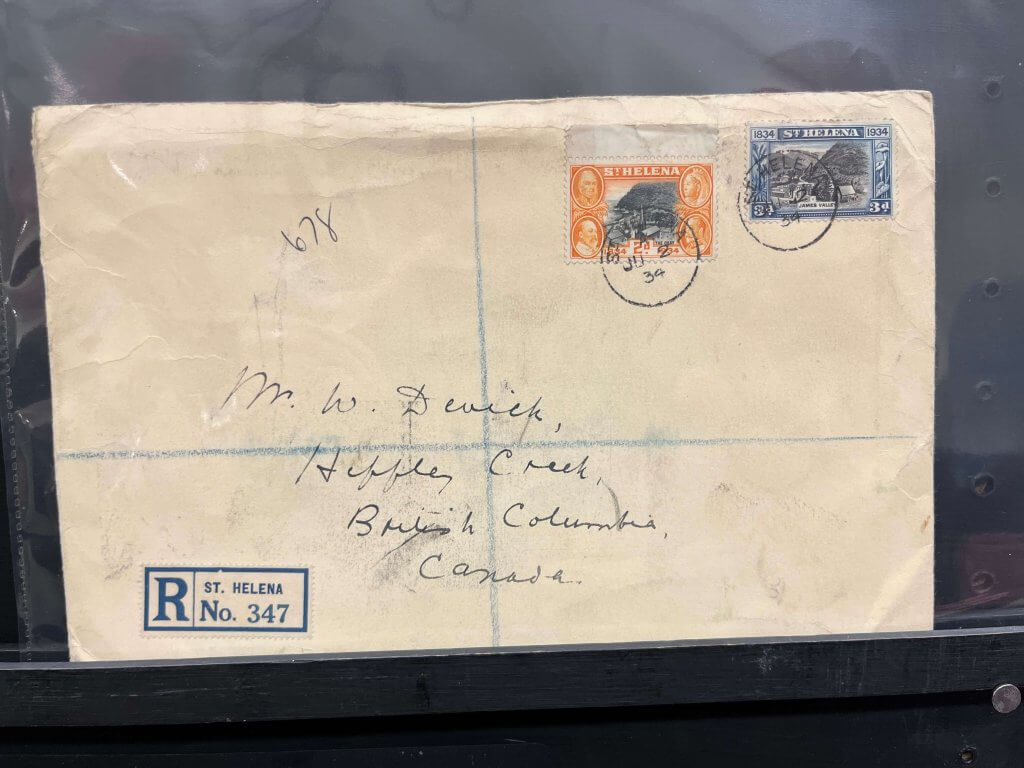 1834 ST HELENA 1934
JAMES VALLEY
3d 3d
ST HELENA
THE QUAY
2d
ST HELENA
JU 2
34
678
Mr. W. Devick,
Heffley Creek,
British Columbia,
Canada.
R ST. HELENA
No. 347